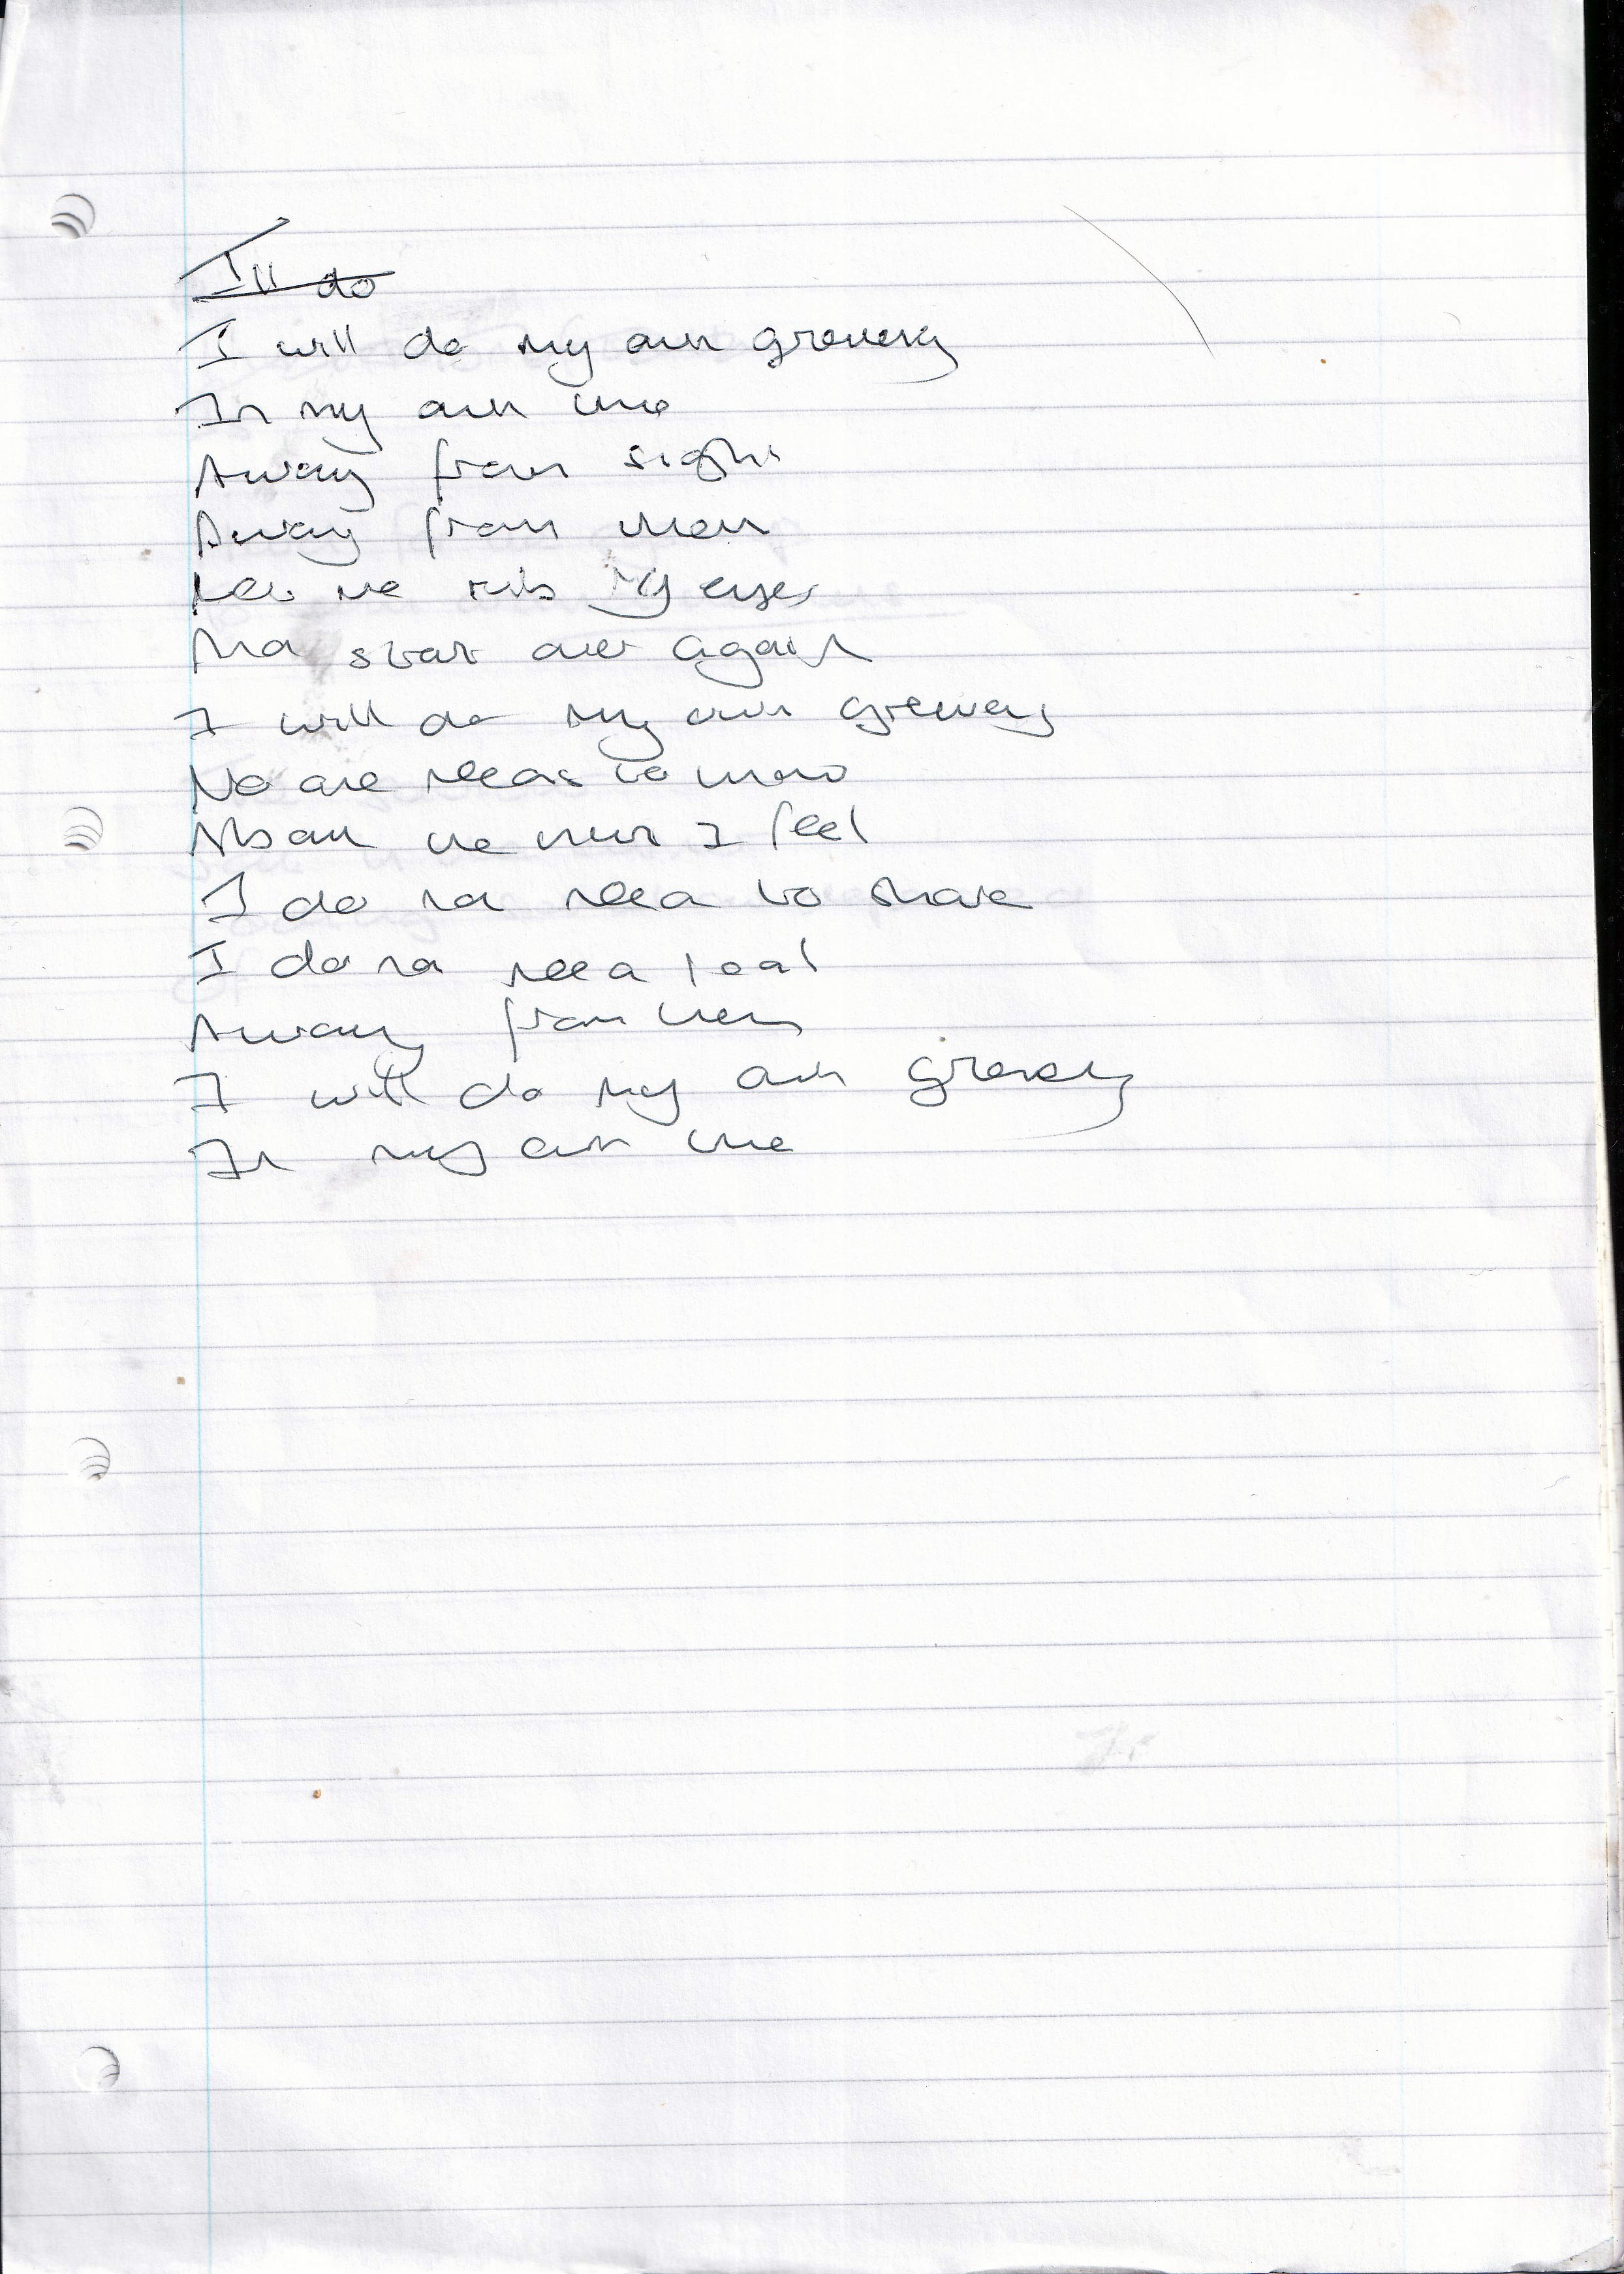 I'll do
I will do my own grieving
In my own time
Away from sight
Away from them
Let me rub my eyes
And start over again
I will do my own grieving
No one needs to know
About the hurt I feel
I do not need to share
I do not need a
Away from them
I will do my own grieving
In my own time